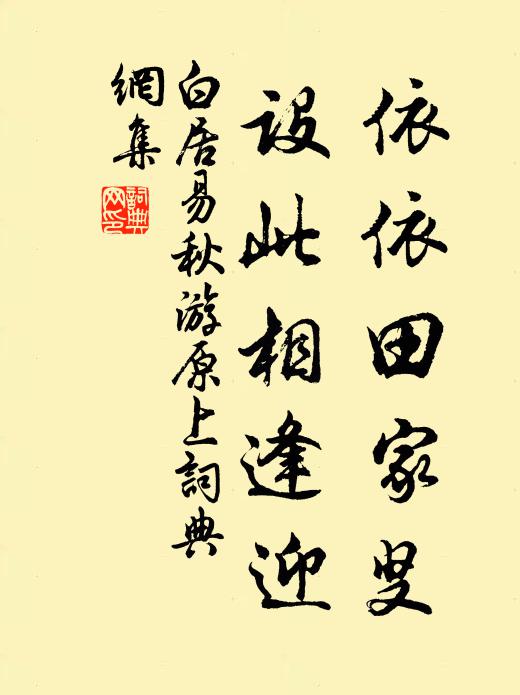 依依田家叟
設此相逢迎
白居易秋游原上詞典
網集
詞典
网印